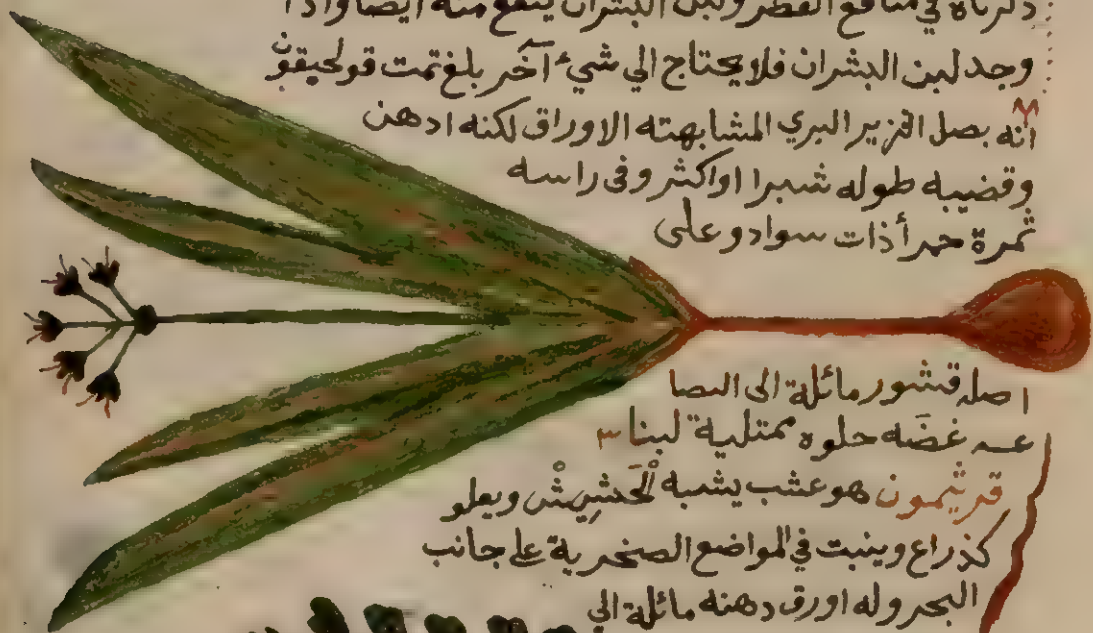 ذكرناه في منافع الفطر ولبن البشران ينفع منه ايضا واذا
وجد لبن البشران فلا يحتاج الي شيء آخر بلغ تمت قولحيقون
انه بصل الزير البري المشابهته الاوراق لكنه ادهن
وقضيبه طوله شبرا اواكثر وفى راسه
ثمرة حمرأ ذات سواد وعلى
اصله قشور مائلة الى البصا
عه غضه حلوه ممتلية لبنا
قريثمون هو عشب يشبه الحشيش ويعلو
كذراع وينبت في المواضع الصخرية علے جانب
البحر وله اورق دهنه مائلة الي